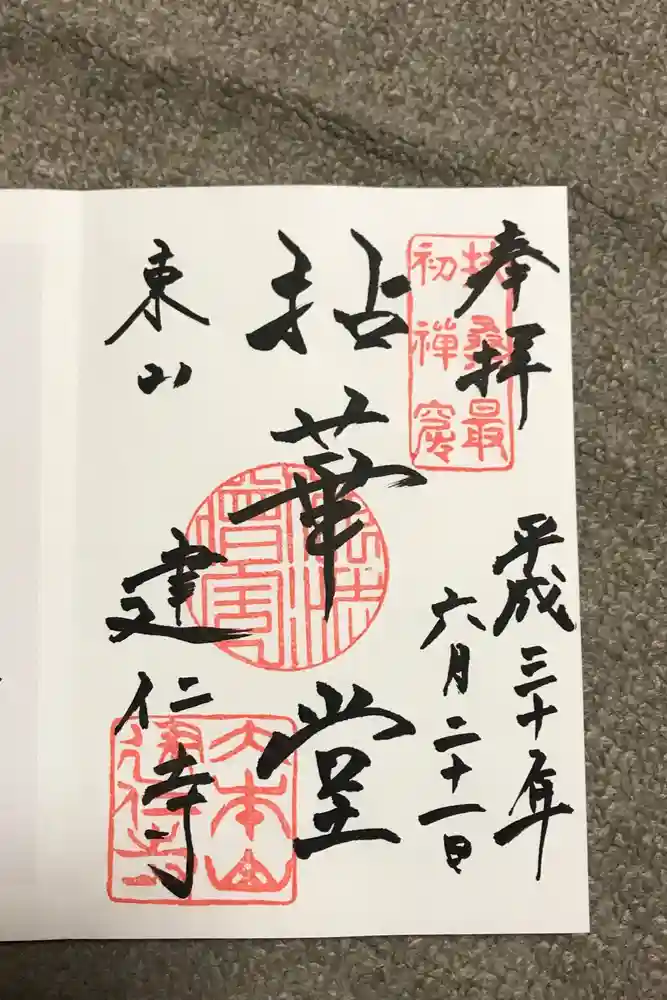 奉拝
平成三十年
六月二十一日
扶桑最
初禅窟
拈華堂
東山
建仁寺
大本山
建仁寺